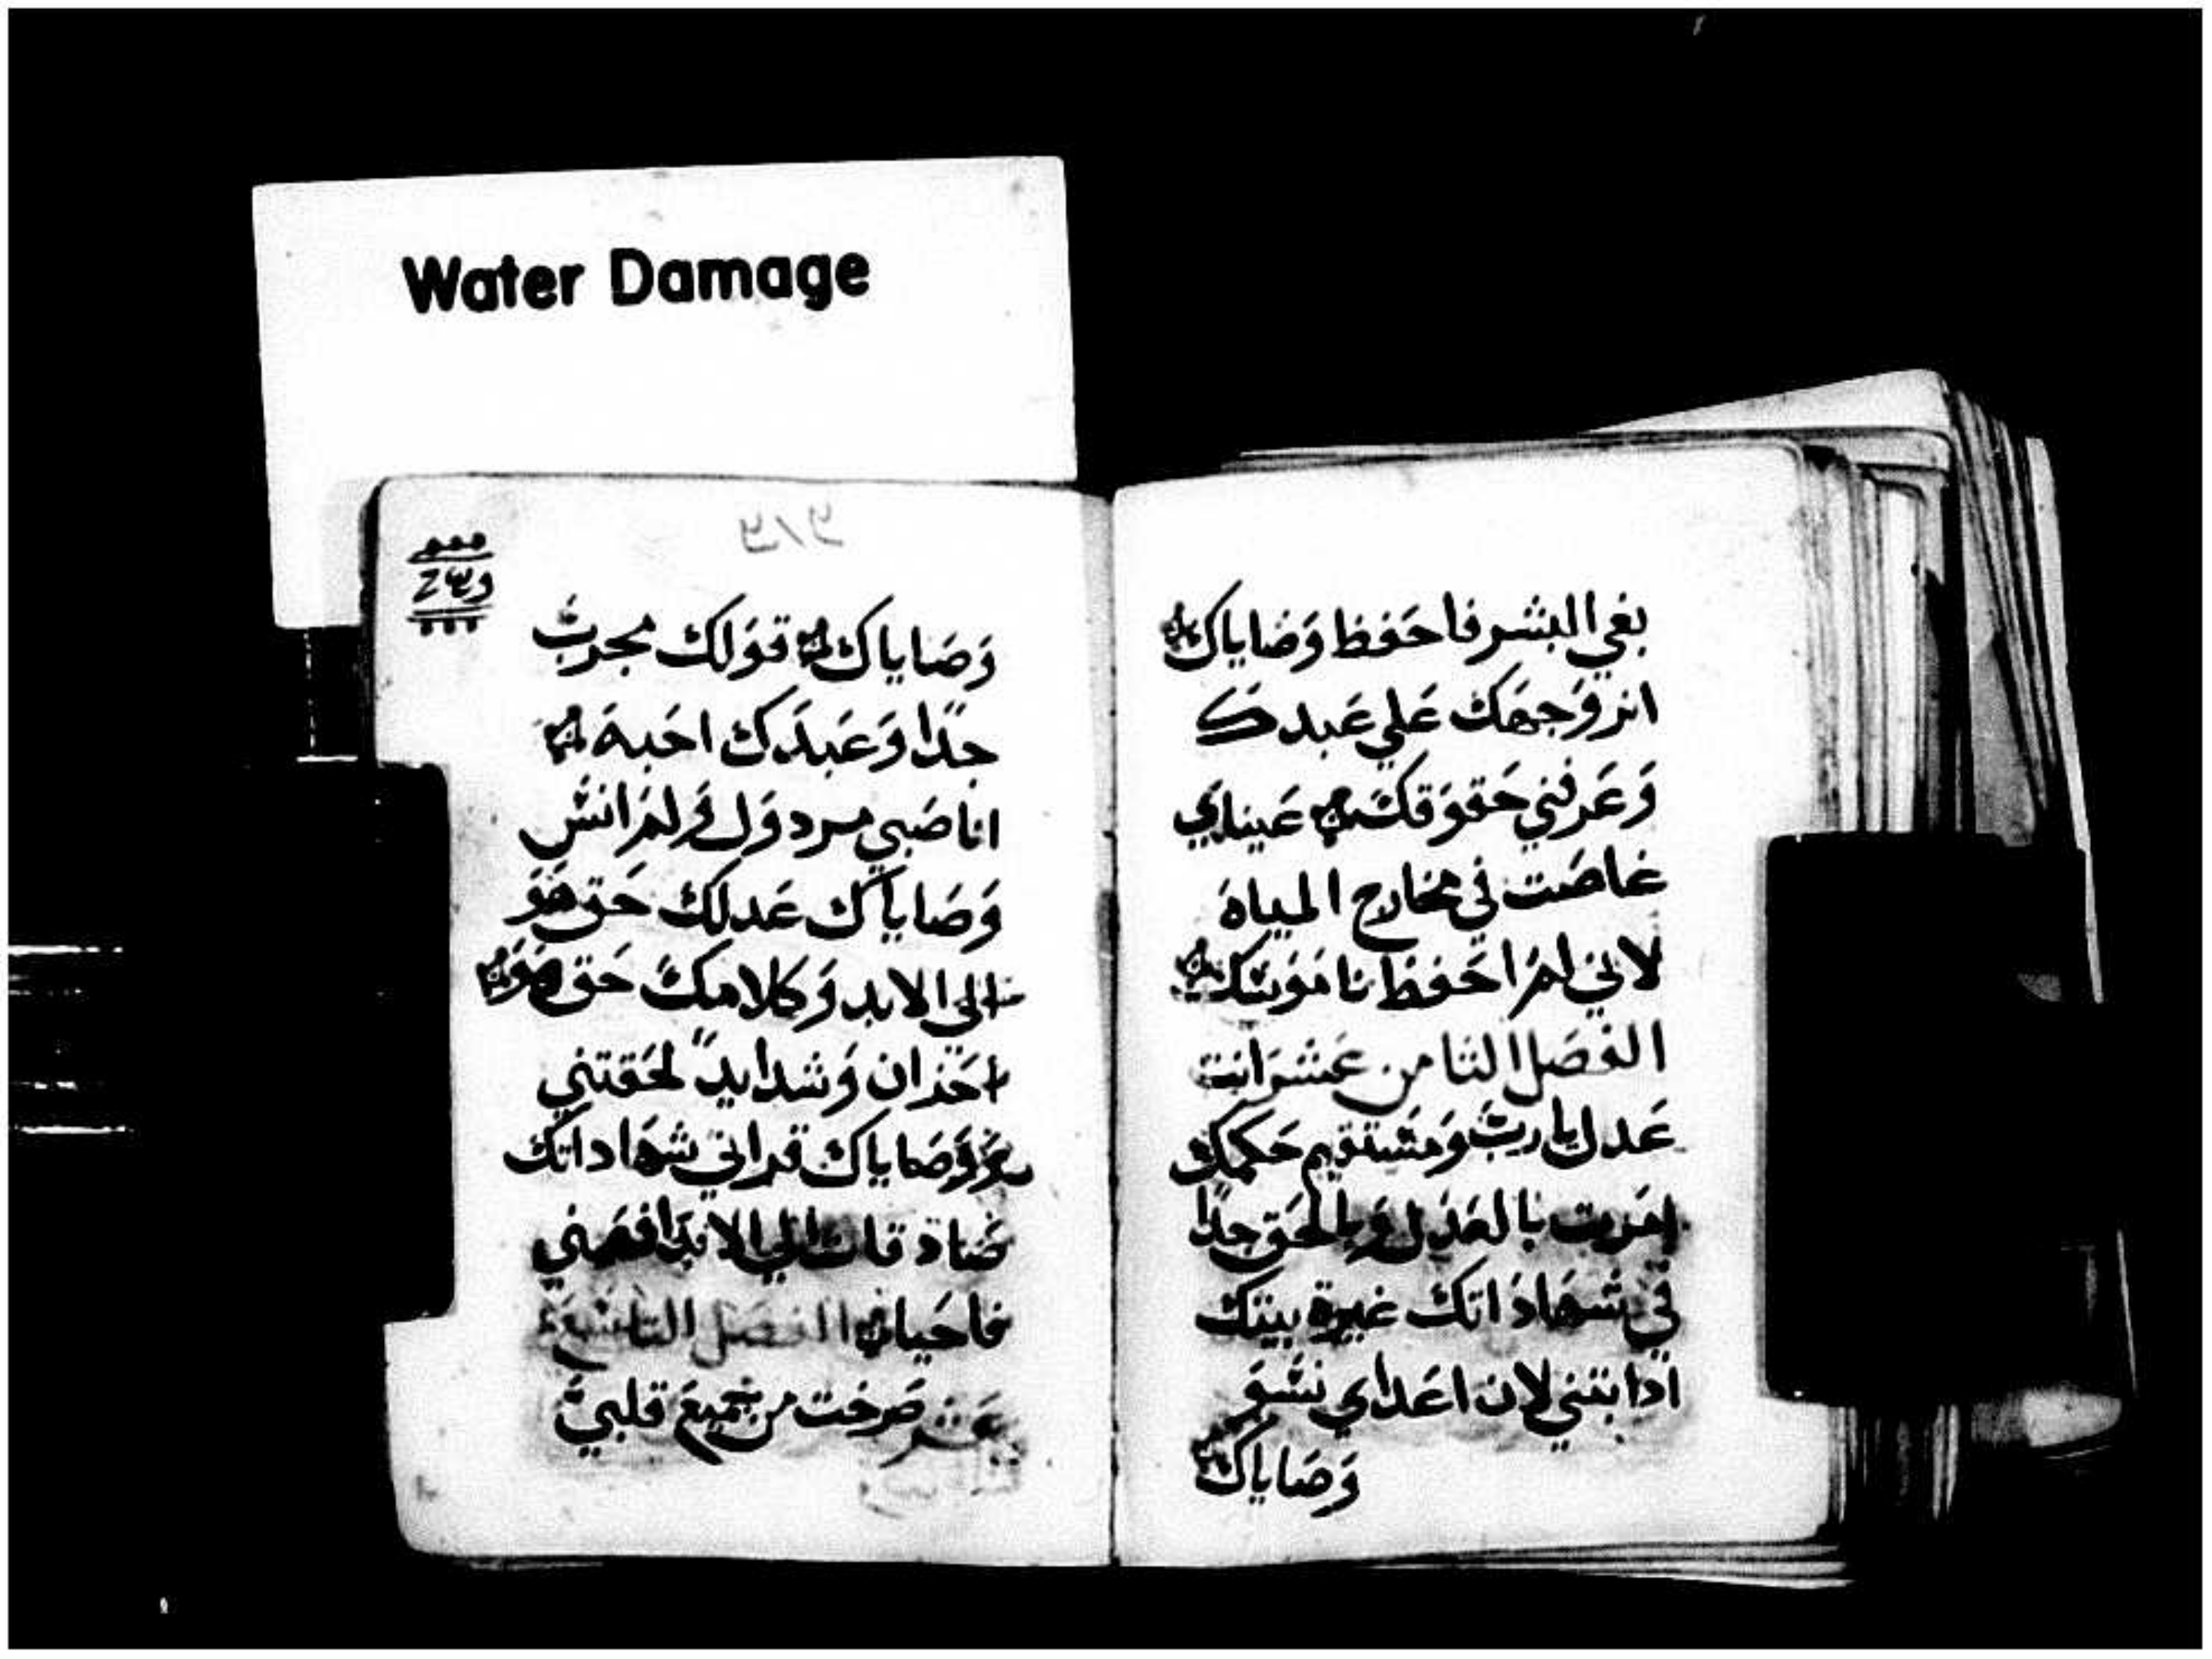 Water Damage
بغي البشر فاحفظ وَصَاياك
انر وَجهَك عَلي عَبدك
وَعَرفني حَقوَقكَ عَيناي
غاصَت في مخارج المياه
لاني لم احَفظ نامَوسَك
الفصَل الثامن عَشر انت
عَدل يا ربّ وَمَستقيم حَكمك
امَرت بالعَدل وَبالحَق جدًا
في شهَاداتك غيرة بيتك
اذابتني لان اعَداي نسَوَ
وَصَاياك
وَصَاياك قوَلك مجربّ
جدًا وَعَبدَك احَبهَ
انا صَبي مردوَل وَلم انسَ
وَصَاياك عَدلك حَق هَوَ
الي الابد وَكلامكَ حَق هَوَ
احَزان وَشدايدً لحَقتني
وَصَاياك قراتي شهَاداتك
الي الابد افهَمني
فاحَيا الفصَل التاسَع
عَشر صَرخت من جَميعَ قلبي